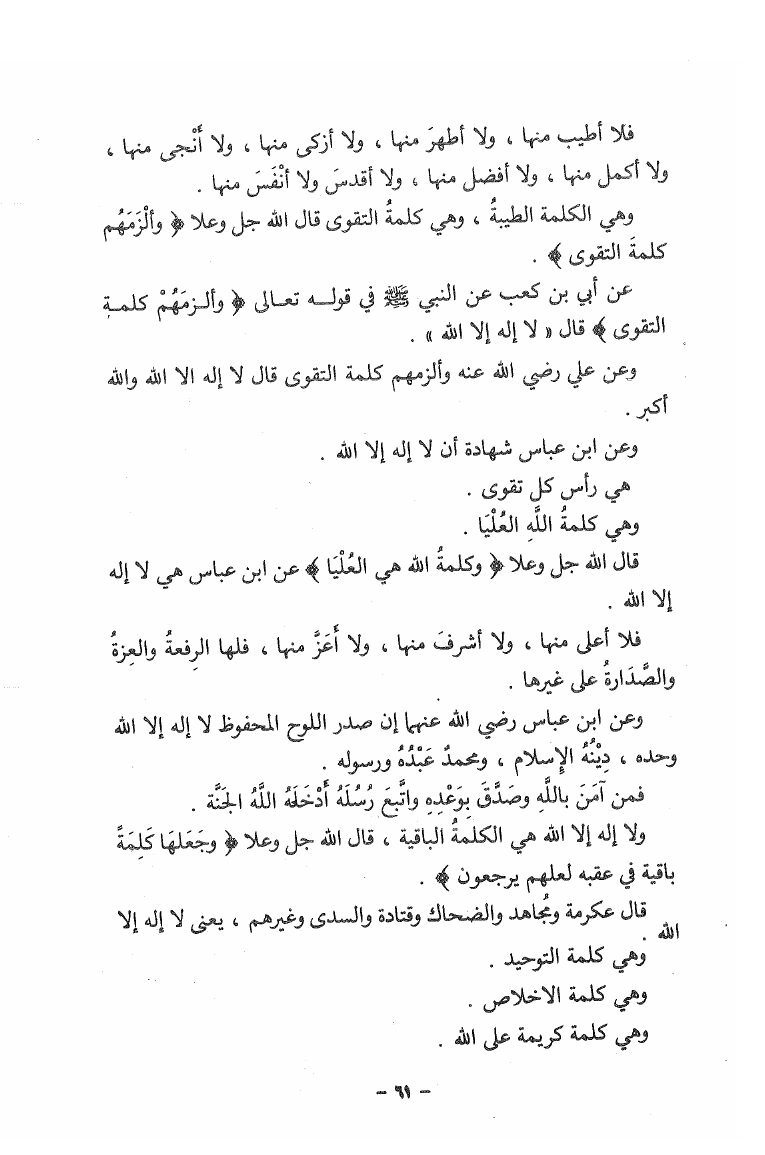 فلا أطيب منها ، ولا أطهرَ منها ، ولا أزكى منها ، ولا أَنْجى منها ،
ولا أكمل منها ، ولا أفضل منها ، ولا أقدسَ ولا أنْفَسَ منها .
وهي الكلمة الطيبةُ ، وهي كلمةُ التقوى قال الله جل وعلا ﴿ وألْزَمَهُم
كلمةَ التقوى ﴾ .
عن أبي بن كعب عن النبي ﷺ في قولـه تعـالى ﴿ وألـزمَهُمْ كلمـة
التقوى ﴾ قال « لا إله إلا الله » .
وعن علي رضي الله عنه وألزمهم كلمة التقوى قال لا إله الا الله والله
أكبر .
وعن ابن عباس شهادة أن لا إله إلا الله .
هي رأس كل تقوى .
وهي كلمةُ اللَّهِ العُلْيَا .
قال الله جل وعلا ﴿ وكلمةُ الله هي العُلْيَا ﴾ عن ابن عباس هي لا إله
إلا الله .
فلا أعلى منها ، ولا أشرفَ منها ، ولا أَعَزَّ منها ، فلها الرِفعةُ والعِزةُ
والصَّدَارةُ على غيرها .
وعن ابن عباس رضي الله عنهما إن صدر اللوح المحفوظ لا إله إلا الله
وحده ، دِيْنُهُ الإِسلام ، ومحمدٌ عَبْدُهُ ورسوله .
فمن آمَنَ باللَّهِ وصَدَّقَ بِوَعْدِهِ واتَّبعَ رُسُلَهُ أَدْخَلَهُ اللَّهُ الجَنَّة .
ولا إله إلا الله هي الكلمةُ الباقية ، قال الله جل وعلا ﴿ وجَعَلهَا كَلِمَةً
باقية في عقبه لعلهم يرجعون ﴾ .
قال عكرمة ومُجاهد والضحاك وقتادة والسدى وغيرهم ، يعنى لا إله إلا
الله .
وهي كلمة التوحيد .
وهي كلمة الاخلاص .
وهي كلمة كريمة على الله .
– ٦١ –